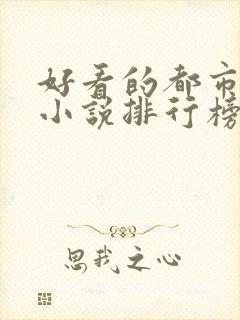 好看的都市
小说排行榜
思我之心